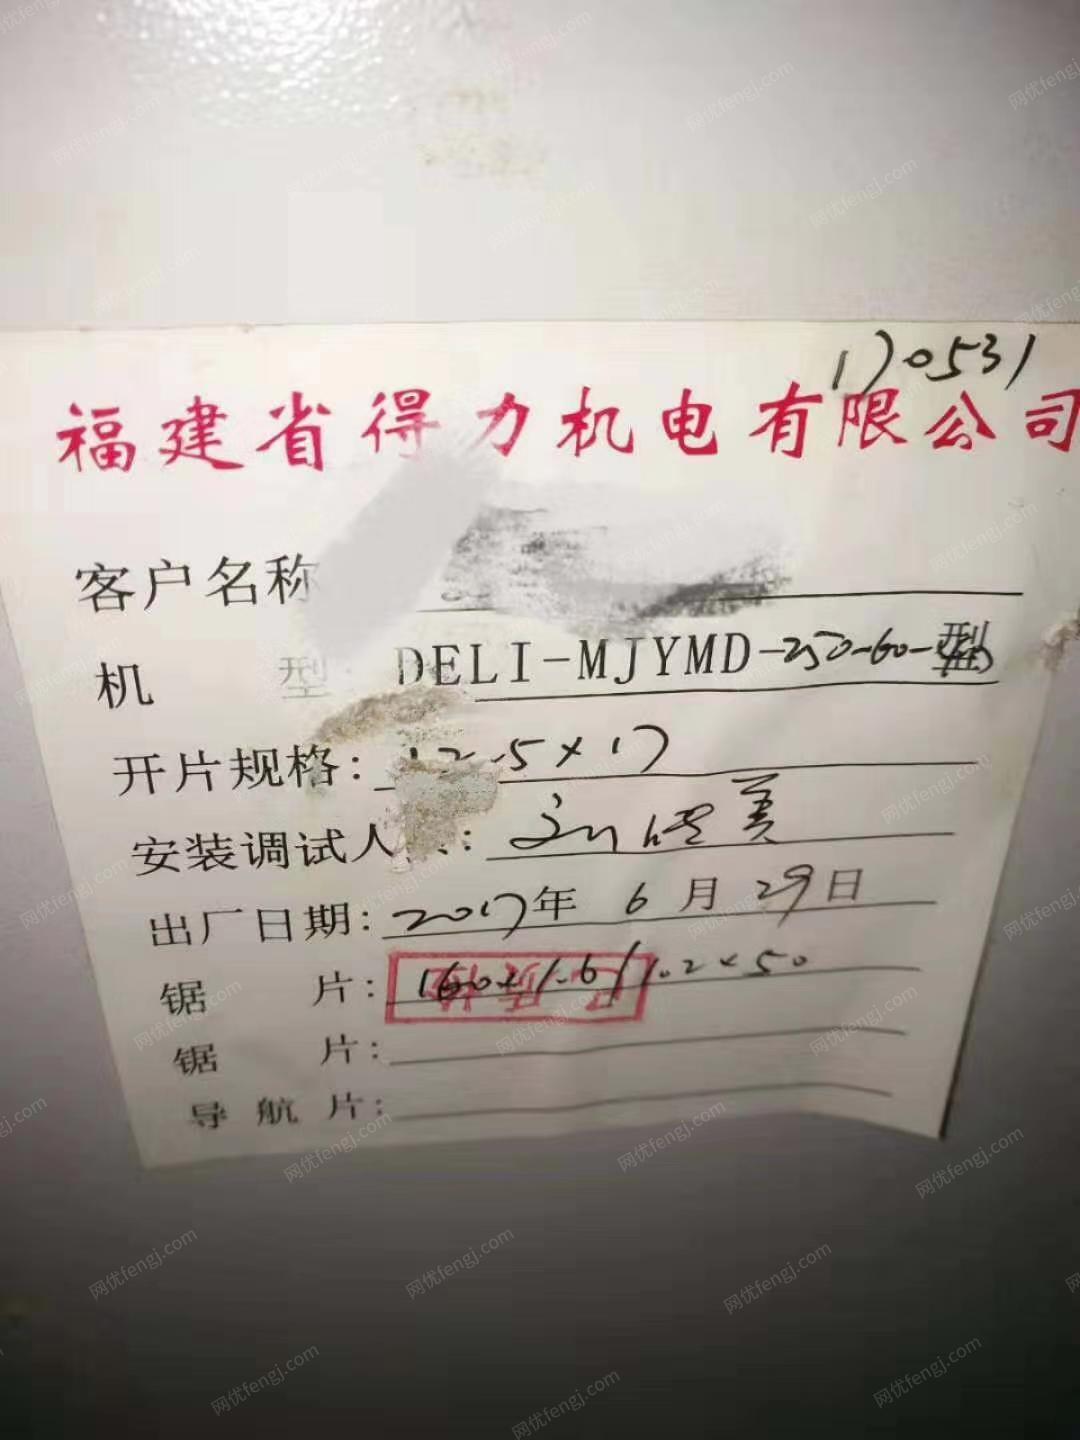 170531
福建省得力机电有限公司
客户名称
机 型: DELI-MJYMD-250-60-型
开片规格: 12.5×17
安装调试人 : 刘 美
出厂日期: 2017年 6月 29日
锯 片: 160×1.6/1.2×50
锯 片:
导 航 片:
网优fengj.com